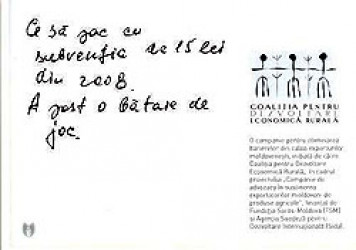 Ce să fac cu
subvenția de 15 lei
din 2008.
A fost o bătaie de
joc.
COALIȚIA PENTRU
DEZVOLTARE
ECONOMICĂ RURALĂ
O campanie pentru eliminarea
barierelor din calea exporturilor
moldovenești, inițiată de către
Coaliția pentru Dezvoltare
Economică Rurală, în cadrul
proiectului "Campanie de
advocacy în susținerea
exportatorilor moldoveni de
produse agricole", finanțat de
Fundația Soros-Moldova (FSM)
și Agenția Suedeză pentru
Dezvoltare Internațională (Sida).